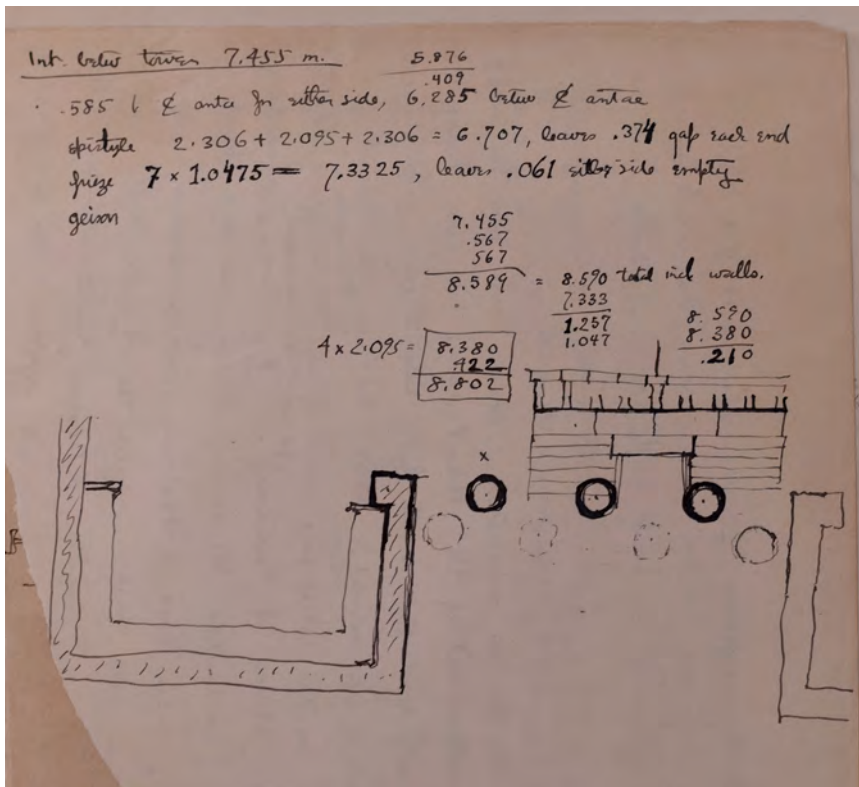 Int. betw towers 7.455 m.
5.876
.409
.585 ₵ antae for either side, 6,285 betw ₵ antae
epistyle 2.306 + 2.095 + 2.306 = 6.707, leaves .374 gap each end
frieze 7 × 1.0475 = 7.3325, leaves .061 either side empty
geison
7.455
.567
567
8.589 = 8.590 total incl walls.
7.333
1.257
1.047
8.590
8.380
.210
4 × 2.095 = 8.380
.422
8.802
x